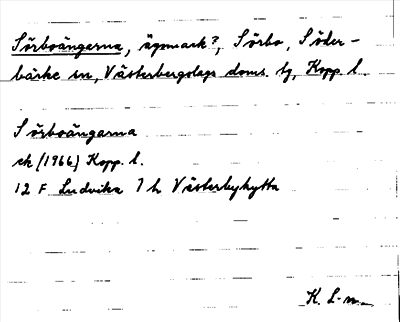 Sörboängarna, ägomark?, Sörbo, Söder-
bärke sn, Västerbergslags doms. tg, Kopp. l.
Sörboängarna
ek (1966) Kopp. l.
12 F Ludvika 7 h Västerbyhytta
K. L-m